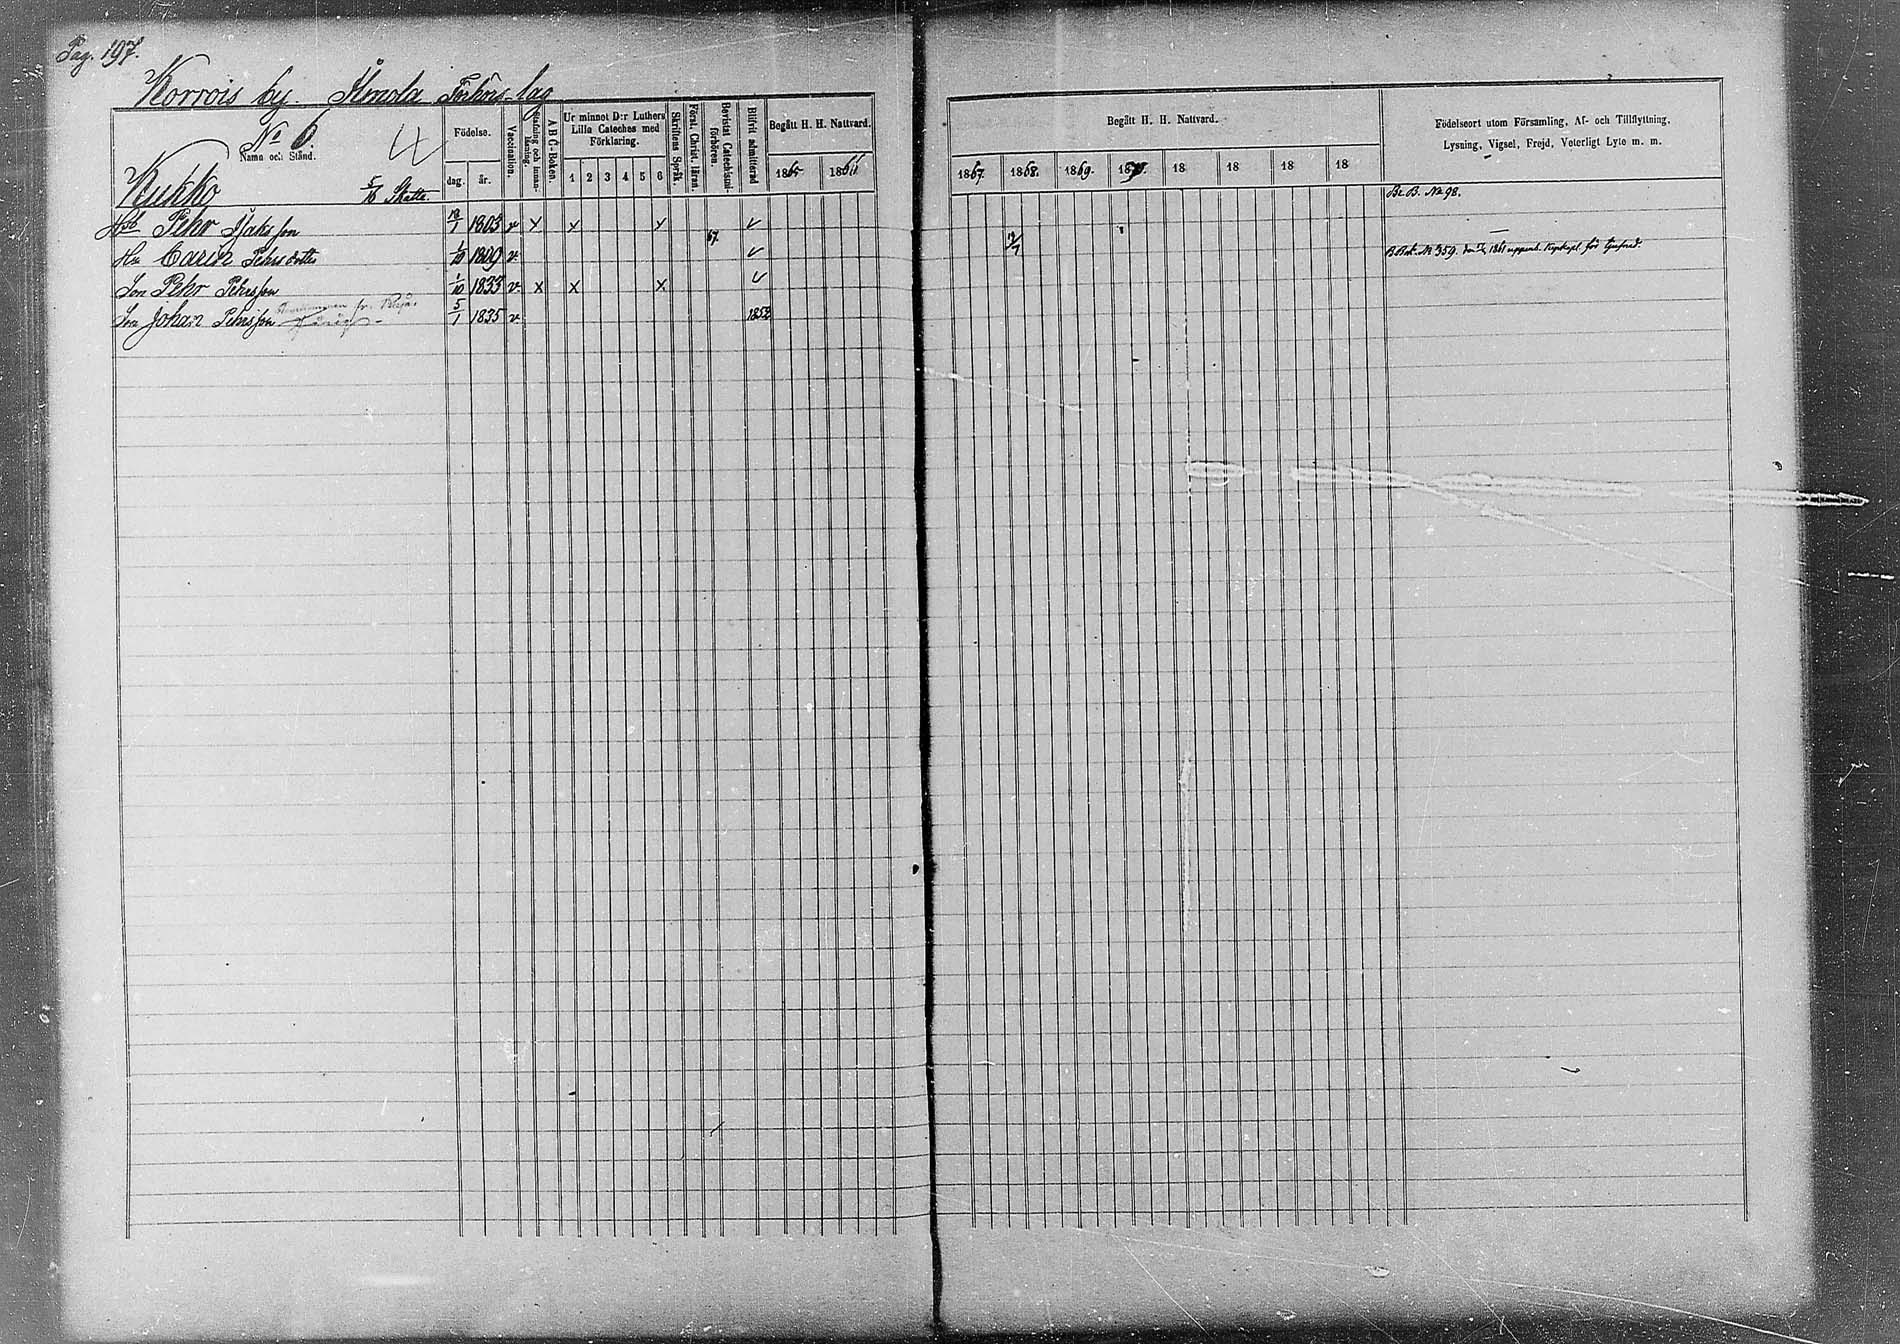 Pag. 197.
Korrois by. Ilmola Förhörs-lag
No 6.
Namn och Stånd.
Födelse.
dag.
år.
Vaccination.
Stafning och innan-läsning.
A B C-Boken.
Ur minnet D:r Luthers Lilla Cateches med Förklaring.
1 2 3 4 5 6
Skriftens Språk.
Först. Christ. läran.
Bevistat Catechismi-förhören.
Blifvit admitterad
Begått H. H. Nattvard.
1865 1866
Begått H. H. Nattvard.
1867. 1868. 1869. 1870. 18 18 18 18
Födelseort utom Församling, Af- och Tillflyttning,
Lysning, Vigsel, Frejd, Veterligt Lyte m. m.
Kukko 5/16 Skatte.
Br. B. No 98.
Hsb Pehr Jakssson 18/1 1803 v x x x v
Hu Carin Pehrsdotter 1/10 1809 v. 67. v
Son Pehr Pehrsson 1/10 1833 v. x x x v
Son Johan Pehrsson 5/1 1835 v. 1853